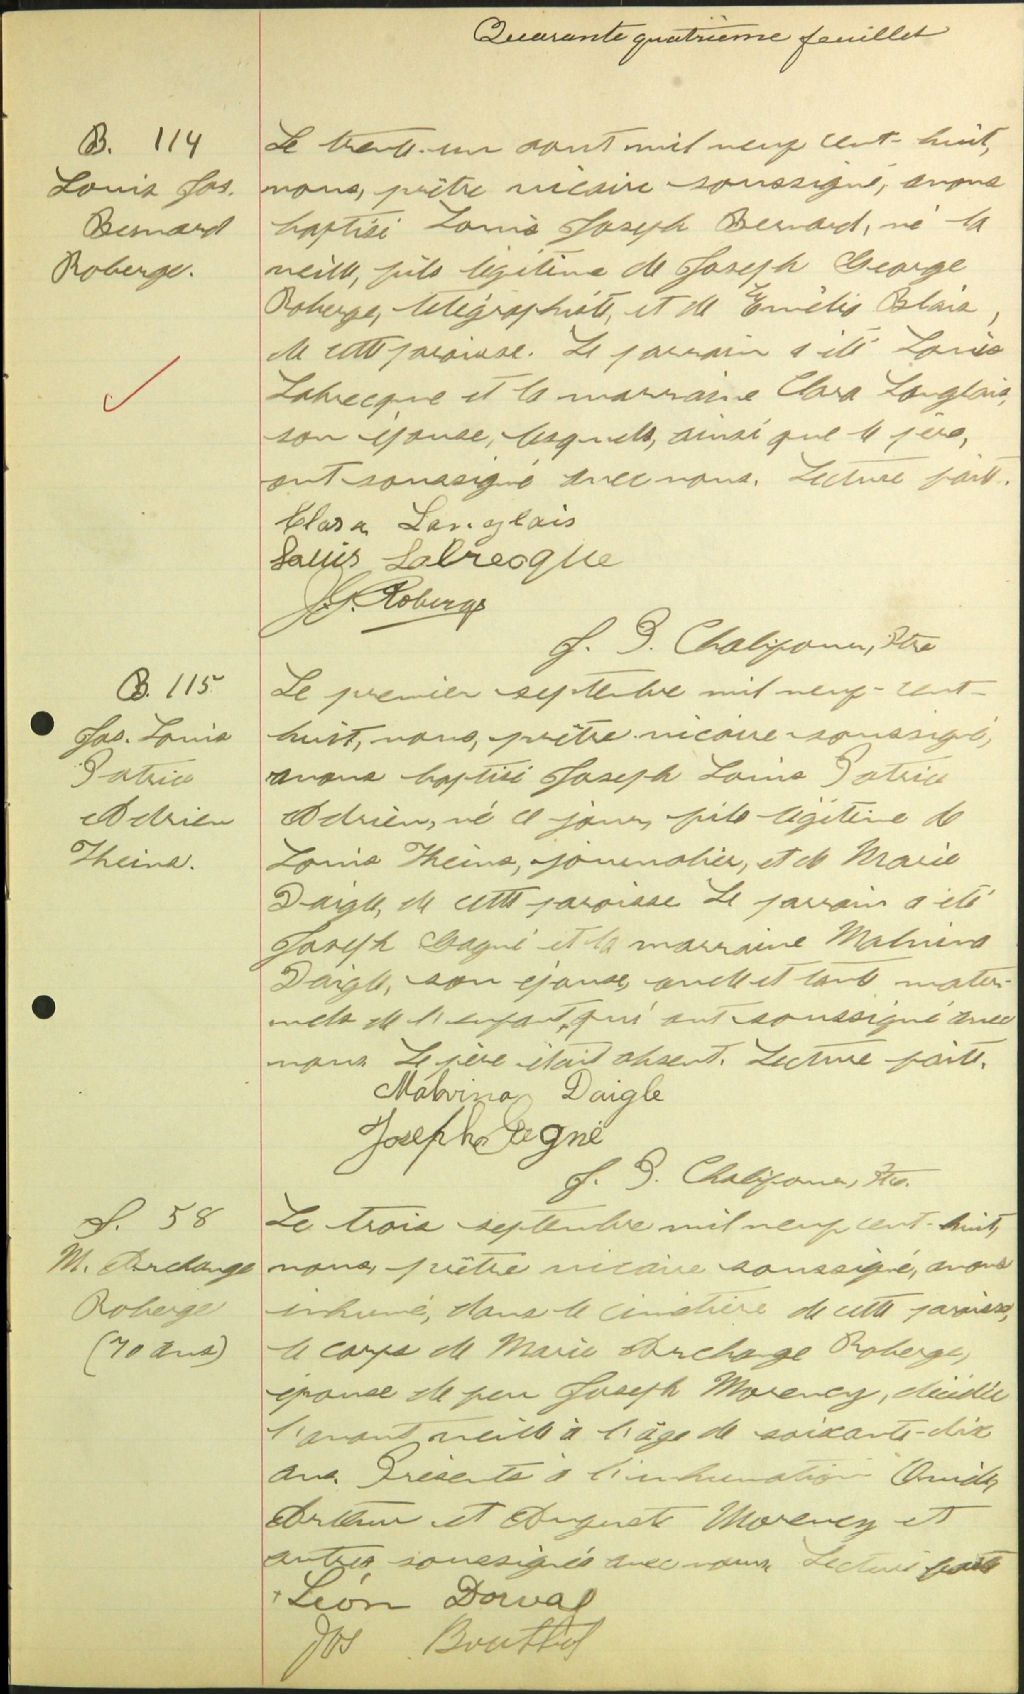 Quarante quatrième feuillet
B. 114
Louis Jos.
Bernard
Roberge.
Le trente-un août mil neuf cent-huit,
nous, prêtre vicaire soussigné, avons
baptisé Louis Joseph Bernard, né la
veille, fils légitime de Joseph George
Roberge, télégraphiste, et de Emélie Blais,
de cette paroisse. Le parrain a été Louis
Labrecque et la marraine Clara Langlais,
son épouse, lesquels, ainsi que le père,
ont soussigné avec nous. Lecture faite.
Clara Langlais
Louis Labrecque
J. G. Roberge
J. P. Chalifour, Ptre
B. 115
Jos. Louis
Patrice
Adrien
Theins.
Le premier septembre mil neuf-cent-
huit, nous, prêtre vicaire soussigné,
avons baptisé Joseph Louis Patrice
Adrien, né ce jour, fils légitime de
Louis Theins, journalier, et de Marie
Daigle, de cette paroisse Le parrain a été
Joseph Gagné et la marraine Malvina
Daigle, son épouse, oncle et tante mater-
nels de l'enfant, qui ont soussigné avec
nous. Le père était absent. Lecture faite.
Malvina Daigle
Joseph Gagné
J. P. Chalifour, Ptre.
S. 58
M. Archange
Roberge
(70 ans)
Le trois septembre mil neuf cent-huit,
nous, prêtre vicaire soussigné, avons
inhumé, dans le cimetière de cette paroisse,
le corps de Marie Archange Roberge,
épouse de feu Joseph Morency, décédée
l'avant veille à l'âge de soixante-dix
ans. Présents à l'inhumation Ovide,
Arthur et Auguste Morency et
autres soussignés avec nous. Lecture faite
Léon Dorval
Jos